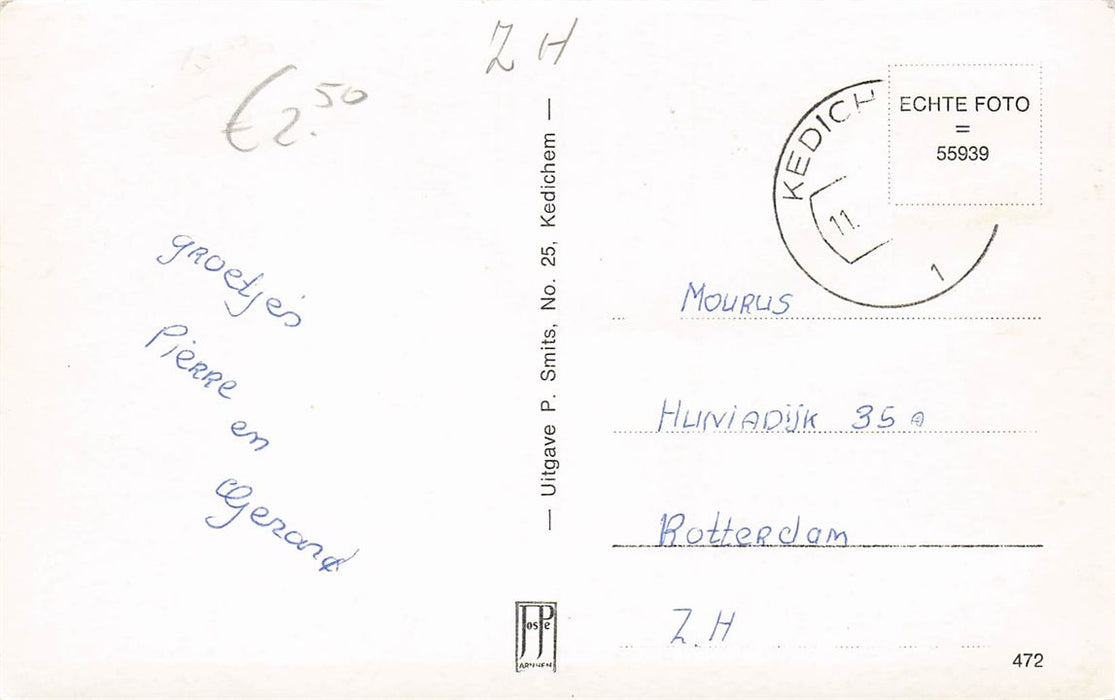 Z H
€ 2.50
groetjes
Pierre
en
Gerard
— Uitgave P. Smits, No. 25, Kedichem —
KEDICH
11.
1
ECHTE FOTO
=
55939
MOURUS
HUNIADIJK 35 A
Rotterdam
Z.H
JosPe
ARNHEM
472